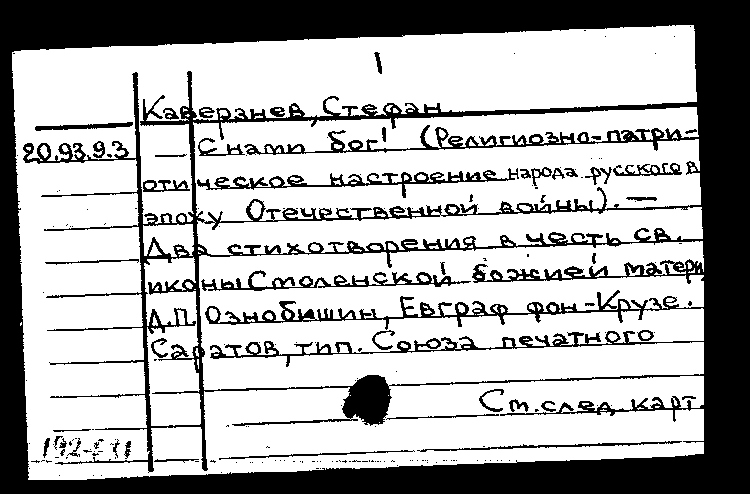 1
Каверзнев, Стефан.
20.93.9.3 — С нами бог! (Религиозно-патри-
отическое настроение народа русского в
эпоху Отечественной войны). —
Два стихотворения в честь св.
иконы Смоленской божией матери
Д.П. Ознобишин, Евграф фон-Крузе.
Саратов, тип. Союза печатного
См. след. карт.